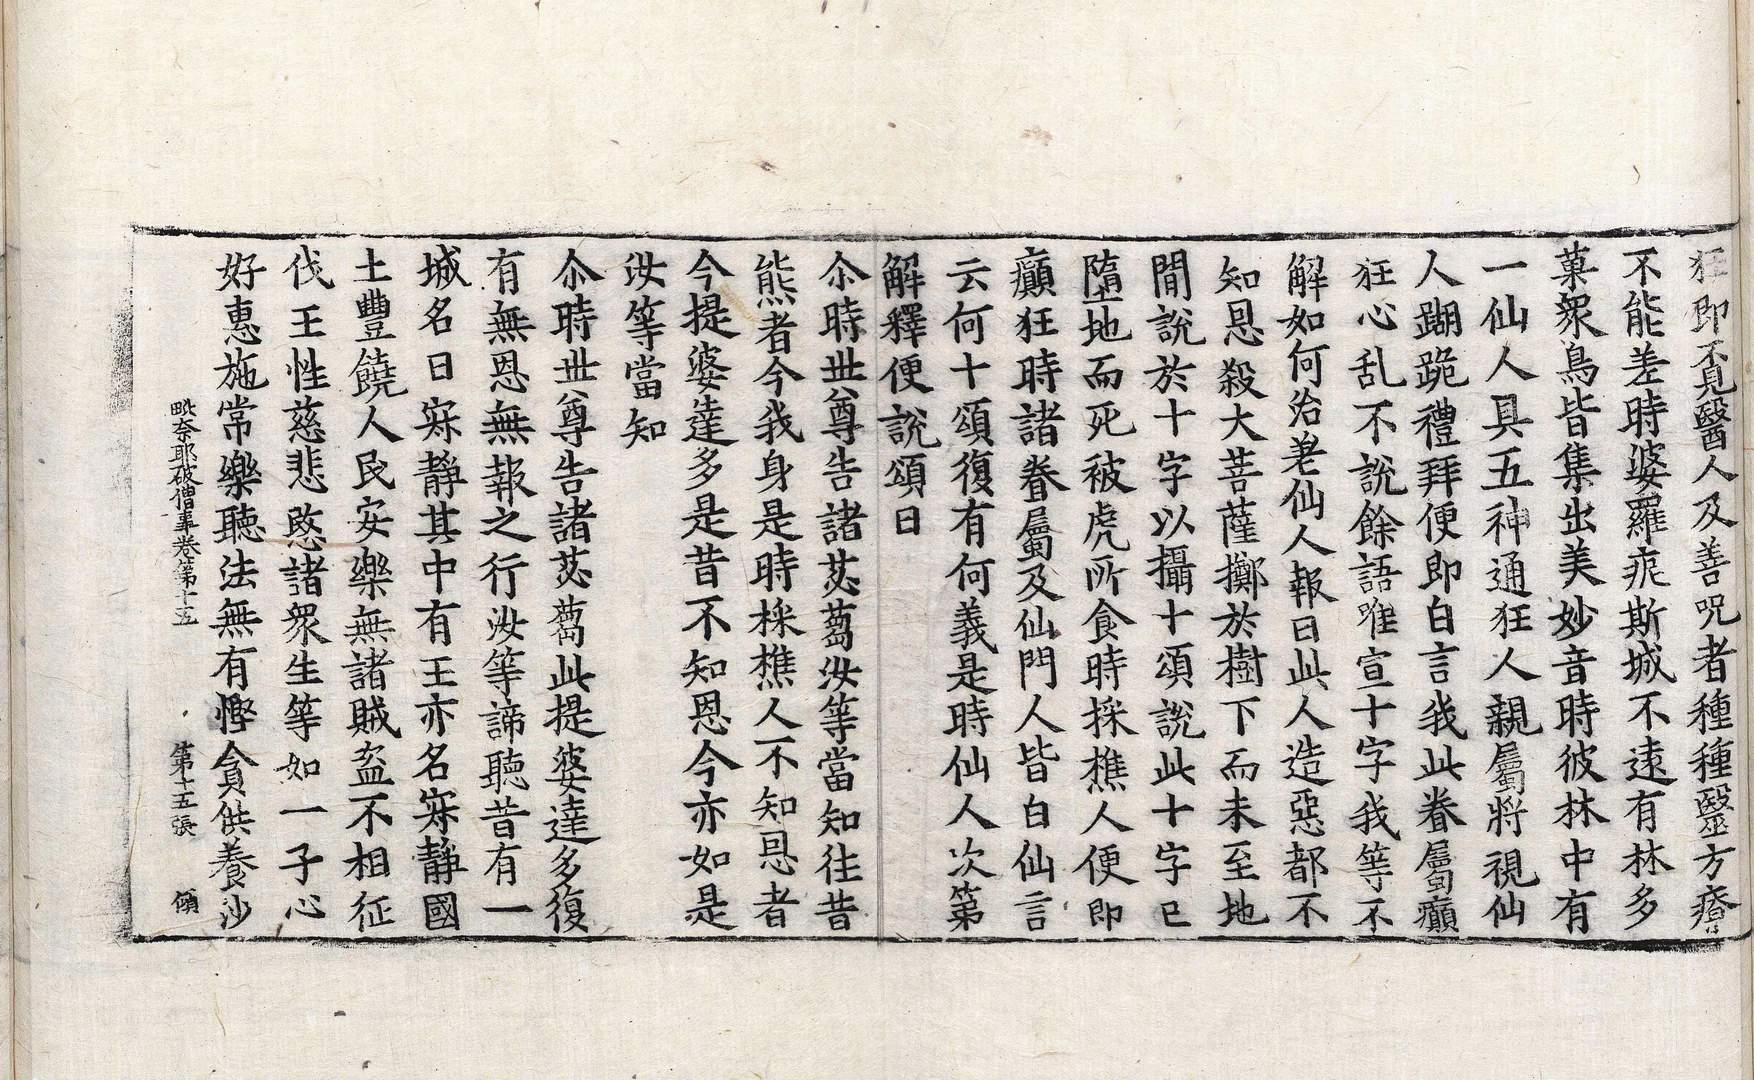 狂即不見醫人及善呪者種種毉方療
不能差時婆羅痆斯城不遠有林多
菓衆鳥皆集出美妙音時彼林中有
一仙人具五神通狂人親屬將視仙
人蹋跪禮拜便即白言我此眷屬癲
狂心乱不說餘語唯宣十字我等不
解如何治老仙人報曰此人造惡都不
知恩殺大菩薩擲於樹下而未至地
間說於十字以攝十頌說此十字已
墮地而死被虎所食時採樵人便即
癲狂時諸眷屬及仙門人皆白仙言
云何十頌復有何義是時仙人次第
解釋便說頌曰
尒時丗尊告諸苾蒭汝等當知往昔
熊者今我身是時採樵人不知恩者
今提婆達多是昔不知恩今亦如是
汝等當知
尒時丗尊告諸苾蒭此提婆達多復
有無恩無報之行汝等諦聽昔有一
城名曰寂靜其中有王亦名寂靜國
土豐饒人民安樂無諸賊盗不相征
伐王性慈悲愍諸衆生等如一子心
好惠施常樂聽法無有慳貪供養沙
毗奈耶破僧事卷第十五 第十五張 傾